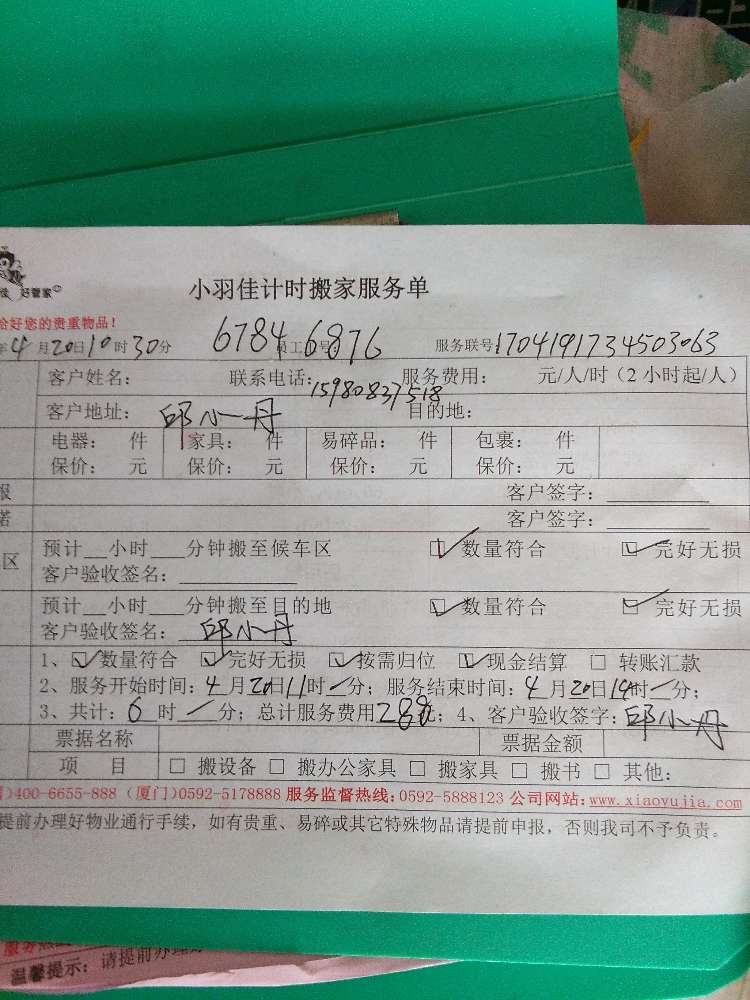 好管家
小羽佳计时搬家服务单
给好您的贵重物品！
年4月20日10时30分 6784 6876 员工 号： 服务联号:1704191734503063
客户姓名： 联系电话：15980837518 服务费用： 元/人/时（2小时起/人）
客户地址： 邱小丹 目的地：
电器： 件 家具： 件 易碎品： 件 包裹： 件
保价： 元 保价： 元 保价： 元 保价： 元
报 客户签字：
诺 客户签字：
区 预计__小时___分钟搬至候车区 ☑数量符合 ☑完好无损
客户验收签名：
预计__小时___分钟搬至目的地 ☑数量符合 ☑完好无损
客户验收签名： 邱小丹
1、☑数量符合 ☑完好无损 ☑按需归位 ☑现金结算 □ 转账汇款
2、服务开始时间：4月20日11时/分；服务结束时间：4月20日14时/分；
3、共计：6时/分；总计服务费用288元；4、客户验收签字：邱小丹
票据名称 票据金额
项 目 □ 搬设备 □ 搬办公家具 □ 搬家具 □ 搬书 □ 其他：
)400-6655-888（厦门)0592-5178888 服务监督热线：0592-5888123 公司网站：www.xiaoyujia.com
提前办理好物业通行手续，如有贵重、易碎或其它特殊物品请提前申报，否则我司不予负责。
温馨提示：请提前办理好